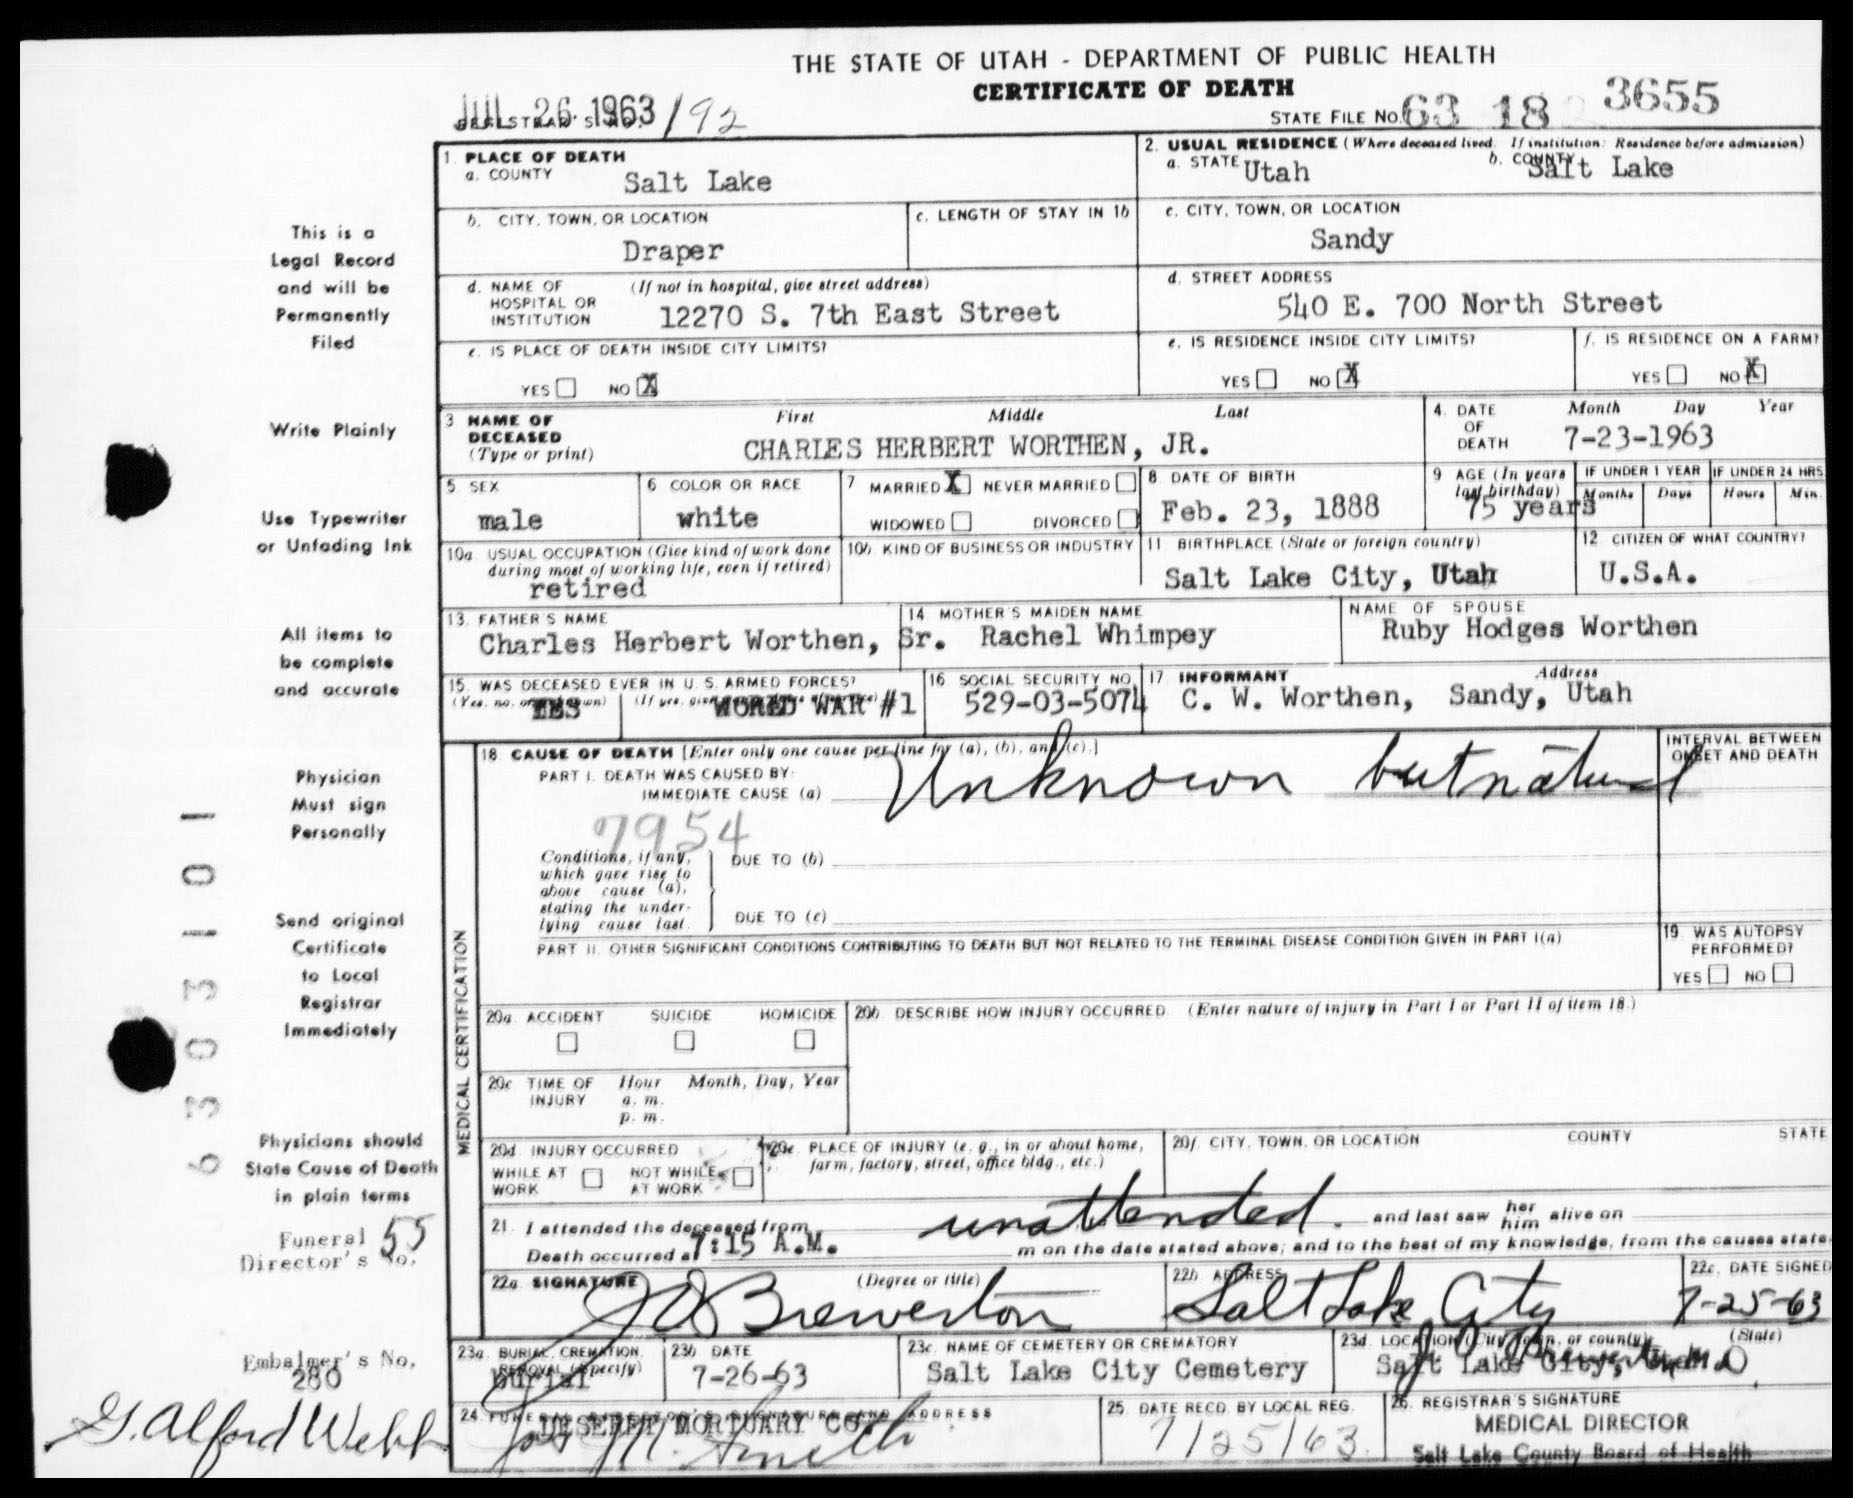 THE STATE OF UTAH - DEPARTMENT OF PUBLIC HEALTH
CERTIFICATE OF DEATH
JUL 26 1963 192
STATE FILE NO. 63 18 3655
1. PLACE OF DEATH
a. COUNTY Salt Lake
2. USUAL RESIDENCE (Where deceased lived. If institution: Residence before admission)
a. STATE Utah b. COUNTY Salt Lake
b. CITY, TOWN, OR LOCATION Draper
c. LENGTH OF STAY IN 1b
c. CITY, TOWN, OR LOCATION Sandy
d. NAME OF HOSPITAL OR INSTITUTION (If not in hospital, give street address) 12270 S. 7th East Street
d. STREET ADDRESS 540 E. 700 North Street
e. IS PLACE OF DEATH INSIDE CITY LIMITS? YES NO X
e. IS RESIDENCE INSIDE CITY LIMITS? YES NO X
f. IS RESIDENCE ON A FARM? YES NO X
3 NAME OF DECEASED (Type or print) First Middle Last
CHARLES HERBERT WORTHEN, JR.
4. DATE OF DEATH Month Day Year
7-23-1963
5 SEX male
6 COLOR OR RACE white
7 MARRIED X NEVER MARRIED
WIDOWED DIVORCED
8. DATE OF BIRTH Feb. 23, 1888
9 AGE (In years last birthday) 75 years
IF UNDER 1 YEAR Months Days
IF UNDER 24 HRS. Hours Min.
10a. USUAL OCCUPATION (Give kind of work done during most of working life, even if retired) retired
10b. KIND OF BUSINESS OR INDUSTRY
11. BIRTHPLACE (State or foreign country) Salt Lake City, Utah
12. CITIZEN OF WHAT COUNTRY? U.S.A.
13. FATHER'S NAME Charles Herbert Worthen, Sr.
14 MOTHER'S MAIDEN NAME Rachel Whimpey
NAME OF SPOUSE Ruby Hodges Worthen
15. WAS DECEASED EVER IN U. S. ARMED FORCES?
YES WORLD WAR #1
16 SOCIAL SECURITY NO. 529-03-5074
17 INFORMANT Address
C. W. Worthen, Sandy, Utah
MEDICAL CERTIFICATION
18. CAUSE OF DEATH [Enter only one cause per line for (a), (b), and (c).]
PART I. DEATH WAS CAUSED BY:
IMMEDIATE CAUSE (a) Unknown but natural
INTERVAL BETWEEN ONSET AND DEATH
7954
Conditions, if any, which gave rise to above cause (a), stating the underlying cause last.
DUE TO (b)
DUE TO (c)
PART II. OTHER SIGNIFICANT CONDITIONS CONTRIBUTING TO DEATH BUT NOT RELATED TO THE TERMINAL DISEASE CONDITION GIVEN IN PART I(a)
19. WAS AUTOPSY PERFORMED?
YES NO
20a. ACCIDENT SUICIDE HOMICIDE
20b. DESCRIBE HOW INJURY OCCURRED. (Enter nature of injury in Part I or Part II of item 18.)
20c TIME OF INJURY Hour a. m. p. m. Month, Day, Year
20d. INJURY OCCURRED
WHILE AT WORK NOT WHILE AT WORK
20e. PLACE OF INJURY (e. g., in or about home, farm, factory, street, office bldg., etc.)
20f. CITY, TOWN, OR LOCATION COUNTY STATE
21. I attended the deceased from unattended. and last saw her him alive on
Death occurred at 7:15 A.M. m on the date stated above; and to the best of my knowledge, from the causes state
22a. SIGNATURE (Degree or title) J D Brewerton
22b. ADDRESS Salt Lake City
22c. DATE SIGNED 7-25-63
23a. BURIAL, CREMATION, REMOVAL (Specify) Burial
23b DATE 7-26-63
23c. NAME OF CEMETERY OR CREMATORY Salt Lake City Cemetery
23d. LOCATION (City, town, or county) (State) Salt Lake City,
24. FUNERAL DIRECTOR'S SIGNATURE AND ADDRESS
DESERET MORTUARY CO.
Jos M. Smith
25. DATE RECD. BY LOCAL REG. 7/25/63
26. REGISTRAR'S SIGNATURE
MEDICAL DIRECTOR
Salt Lake County Board of Health
This is a
Legal Record
and will be
Permanently
Filed
Write Plainly
Use Typewriter
or Unfading Ink
All items to
be complete
and accurate
Physician
Must sign
Personally
Send original
Certificate
to Local
Registrar
Immediately
Physicians should
State Cause of Death
in plain terms
Funeral
Director's No. 55
Embalmer's No.
280
G. Alford Webb
6303101